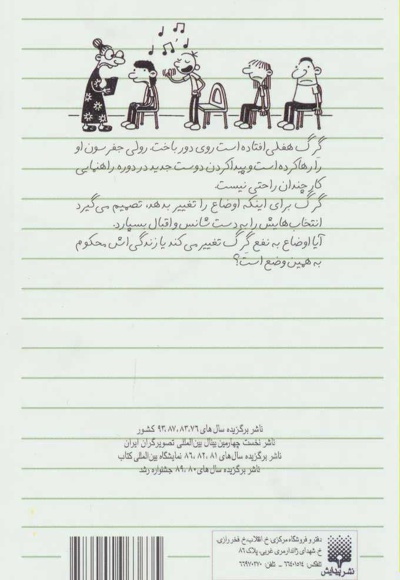 گرگ هفلی افتاده است روی دور باخت. رولی جفرسون او
را رها کرده است و پیدا کردن دوست جدید در دوره راهنمایی
کار چندان راحتی نیست.
گرگ برای اینکه اوضاع را تغییر بدهد، تصمیم می‌گیرد
انتخاب‌هایش را به دست شانس و اقبال بسپارد.
آیا اوضاع به نفع گرگ تغییر می‌کند یا زندگی‌اش محکوم
به همین وضع است؟
ناشر برگزیده سال‌های ۷۶،۸۳،۸۷،۹۳ کشور
ناشر نخست چهارمین بینال بین‌المللی تصویرگران ایران
ناشر برگزیده سال‌های ۸۱ ،۸۲ ،۸۶ نمایشگاه بین‌المللی کتاب
ناشر برگزیده سال‌های ۸۰، ۸۹ جشنواره رشد
دفتر و فروشگاه مرکزی: خ انقلاب، خ فخررازی،
خ شهدای ژاندارمری غربی، پلاک ۸۶
تلفکس: ۶۶۴۰۱۵۱۴ - تلفن: ۶۶۹۷۰۲۷۰
نشر پیدایش